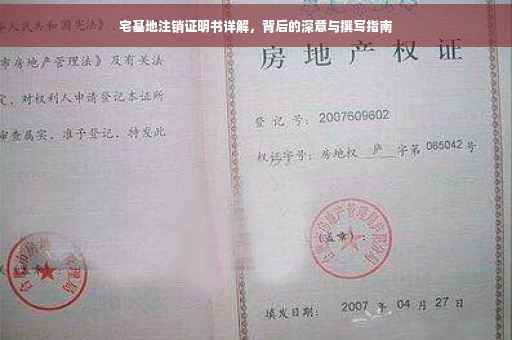 宅基地注销证明书详解，背后的深意与撰写指南
华人民共和国宪法》、
市房地产管理法》及有关法
定，对权利人申请登记本证所
审查属实，准予登记，特发此
房地产权证
登 记 号：2007609602
权证字号：房地权 庐 字第 085042 号
(盖章)：
填发日期：2007 年 04 月 27 日